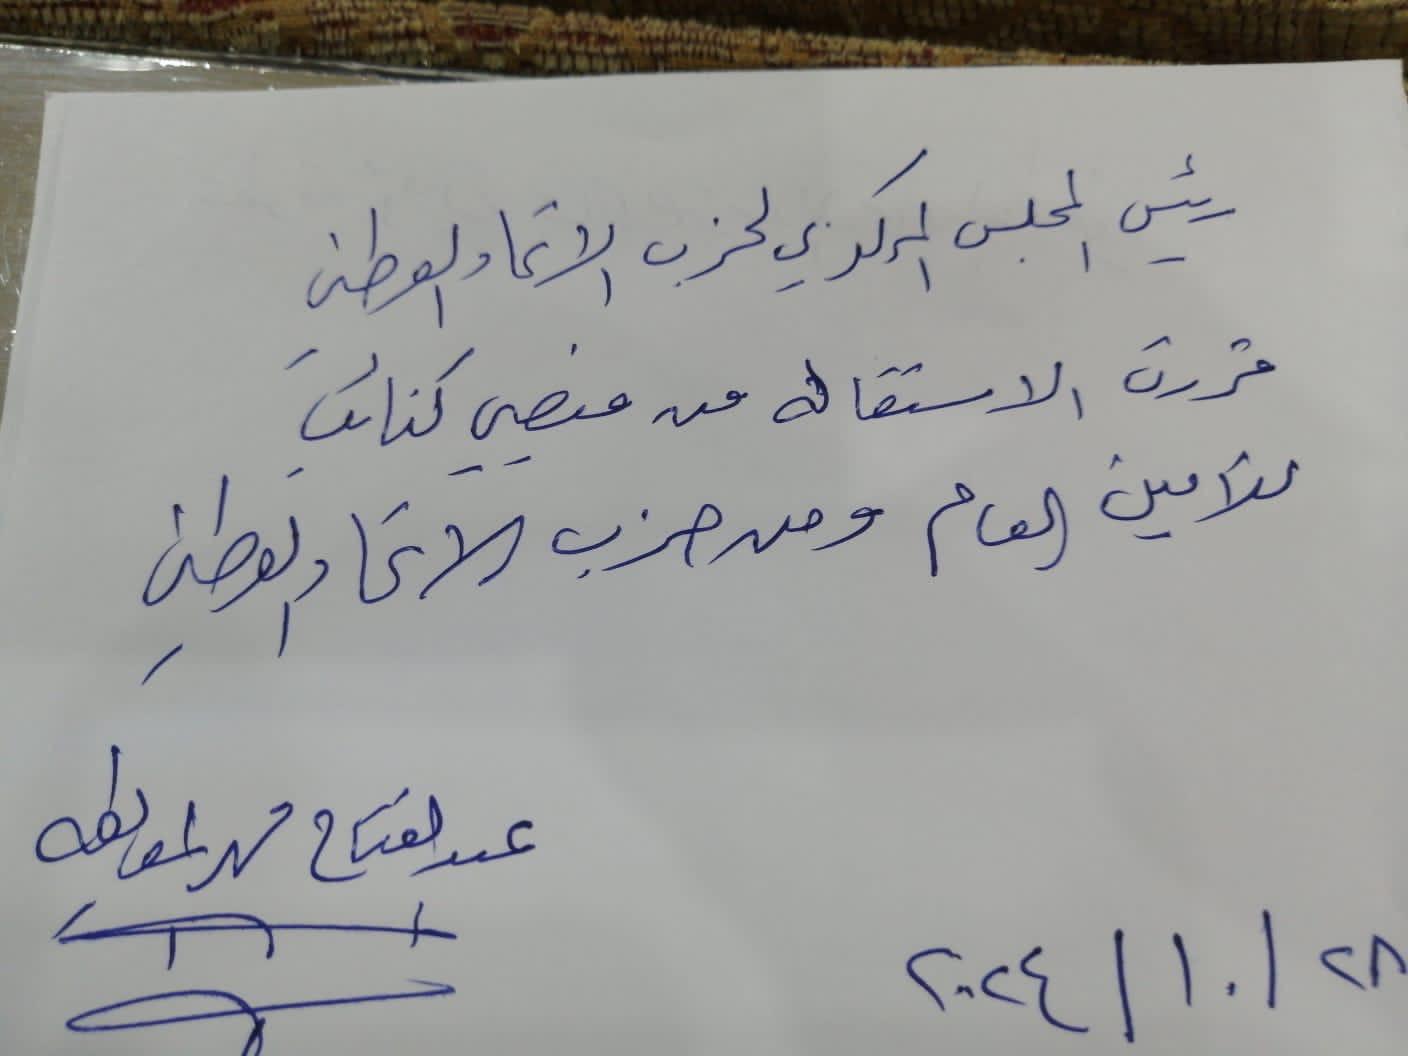 رئيس المجلس المركزي لحزب الاتحاد الوطني
قررت الاستقاله من منصبي كنائب
للأمين العام ومن حزب الاتحاد الوطني
عبد الفتاح محمد المعايطه
٢٨ / ١٠ / ٢٠٢٤